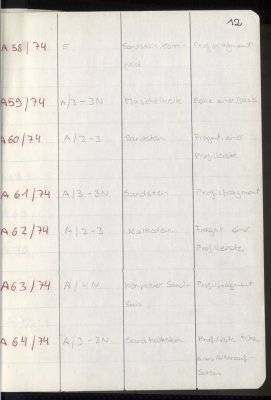 12
A 58/74 E Sandstein, Profilfragment
A59/74 A/3-3N Ecke
A60/74 A/2-3 Sandstein Fragm. einer
Profilleiste
A 61/74 A/3-3N Sandstein Profilfragment
A 62/74 A/2-3 Kalkstein Fragm. einer
Profilleiste
A63/74 A/4N Sand-
stein Profilfragment
A 64/74 A/3-3N Sandkalkstein Profilierte Ecke